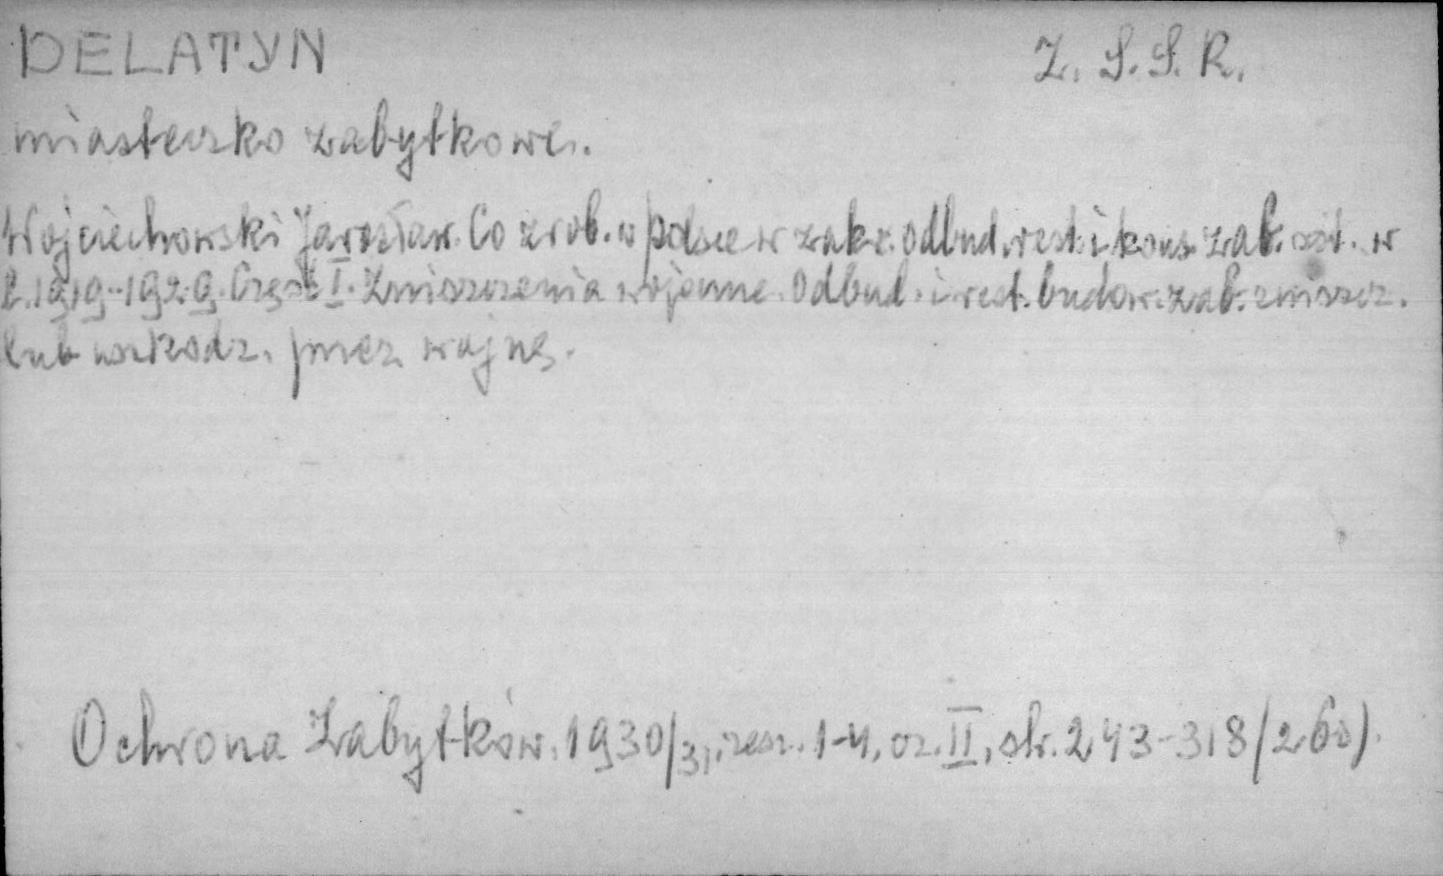 DELATYN Z.S.S.R.
miasteczko zabytkowe.
Wojciechowski Jarosław. Co zrob. w Polsce w zakr. odbud. rest. i kons. zab. szt. w
l. 1919-1929. Część I. Zniszczenia wojenne. Odbud. i rest. budow. zab. zniszcz.
lub uszkodz. przez wojnę.
Ochrona Zabytków. 1930/31, zesz. 1-4, cz. II, str. 243-318/260).